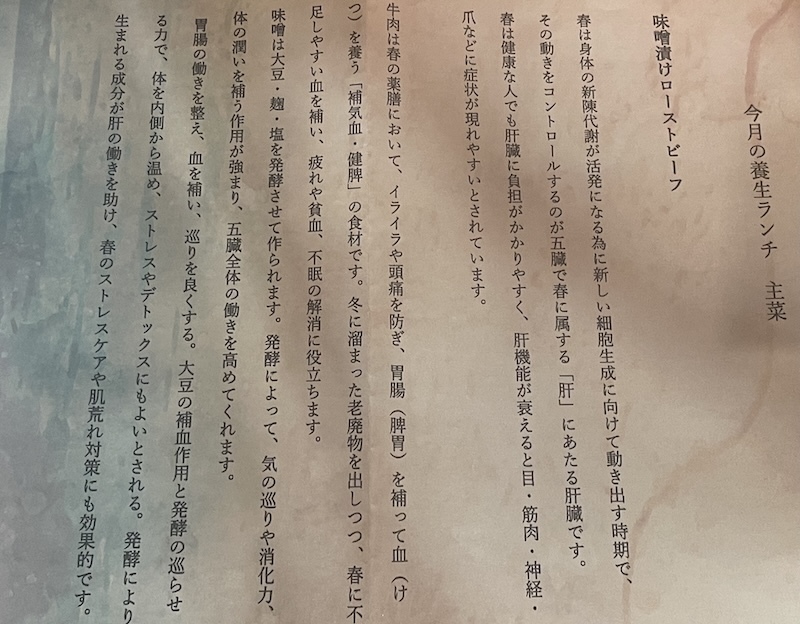 今月の養生ランチ　主菜
味噌漬けローストビーフ
春は身体の新陳代謝が活発になる為に新しい細胞生成に向けて動き出す時期で、
その動きをコントロールするのが五臓で春に属する「肝」にあたる肝臓です。
春は健康な人でも肝臓に負担がかかりやすく、肝機能が衰えると目・筋肉・神経・
爪などに症状が現れやすいとされています。
牛肉は春の薬膳において、イライラや頭痛を防ぎ、胃腸（脾胃）を補って血（け
つ）を養う「補気血・健脾」の食材です。冬に溜まった老廃物を出しつつ、春に不
足しやすい血を補い、疲れや貧血、不眠の解消に役立ちます。
味噌は大豆・麹・塩を発酵させて作られます。発酵によって、気の巡りや消化力、
体の潤いを補う作用が強まり、五臓全体の働きを高めてくれます。
胃腸の働きを整え、血を補い、巡りを良くする。大豆の補血作用と発酵の巡らせ
る力で、体を内側から温め、ストレスやデトックスにもよいとされる。発酵により
生まれる成分が肝の働きを助け、春のストレスケアや肌荒れ対策にも効果的です。